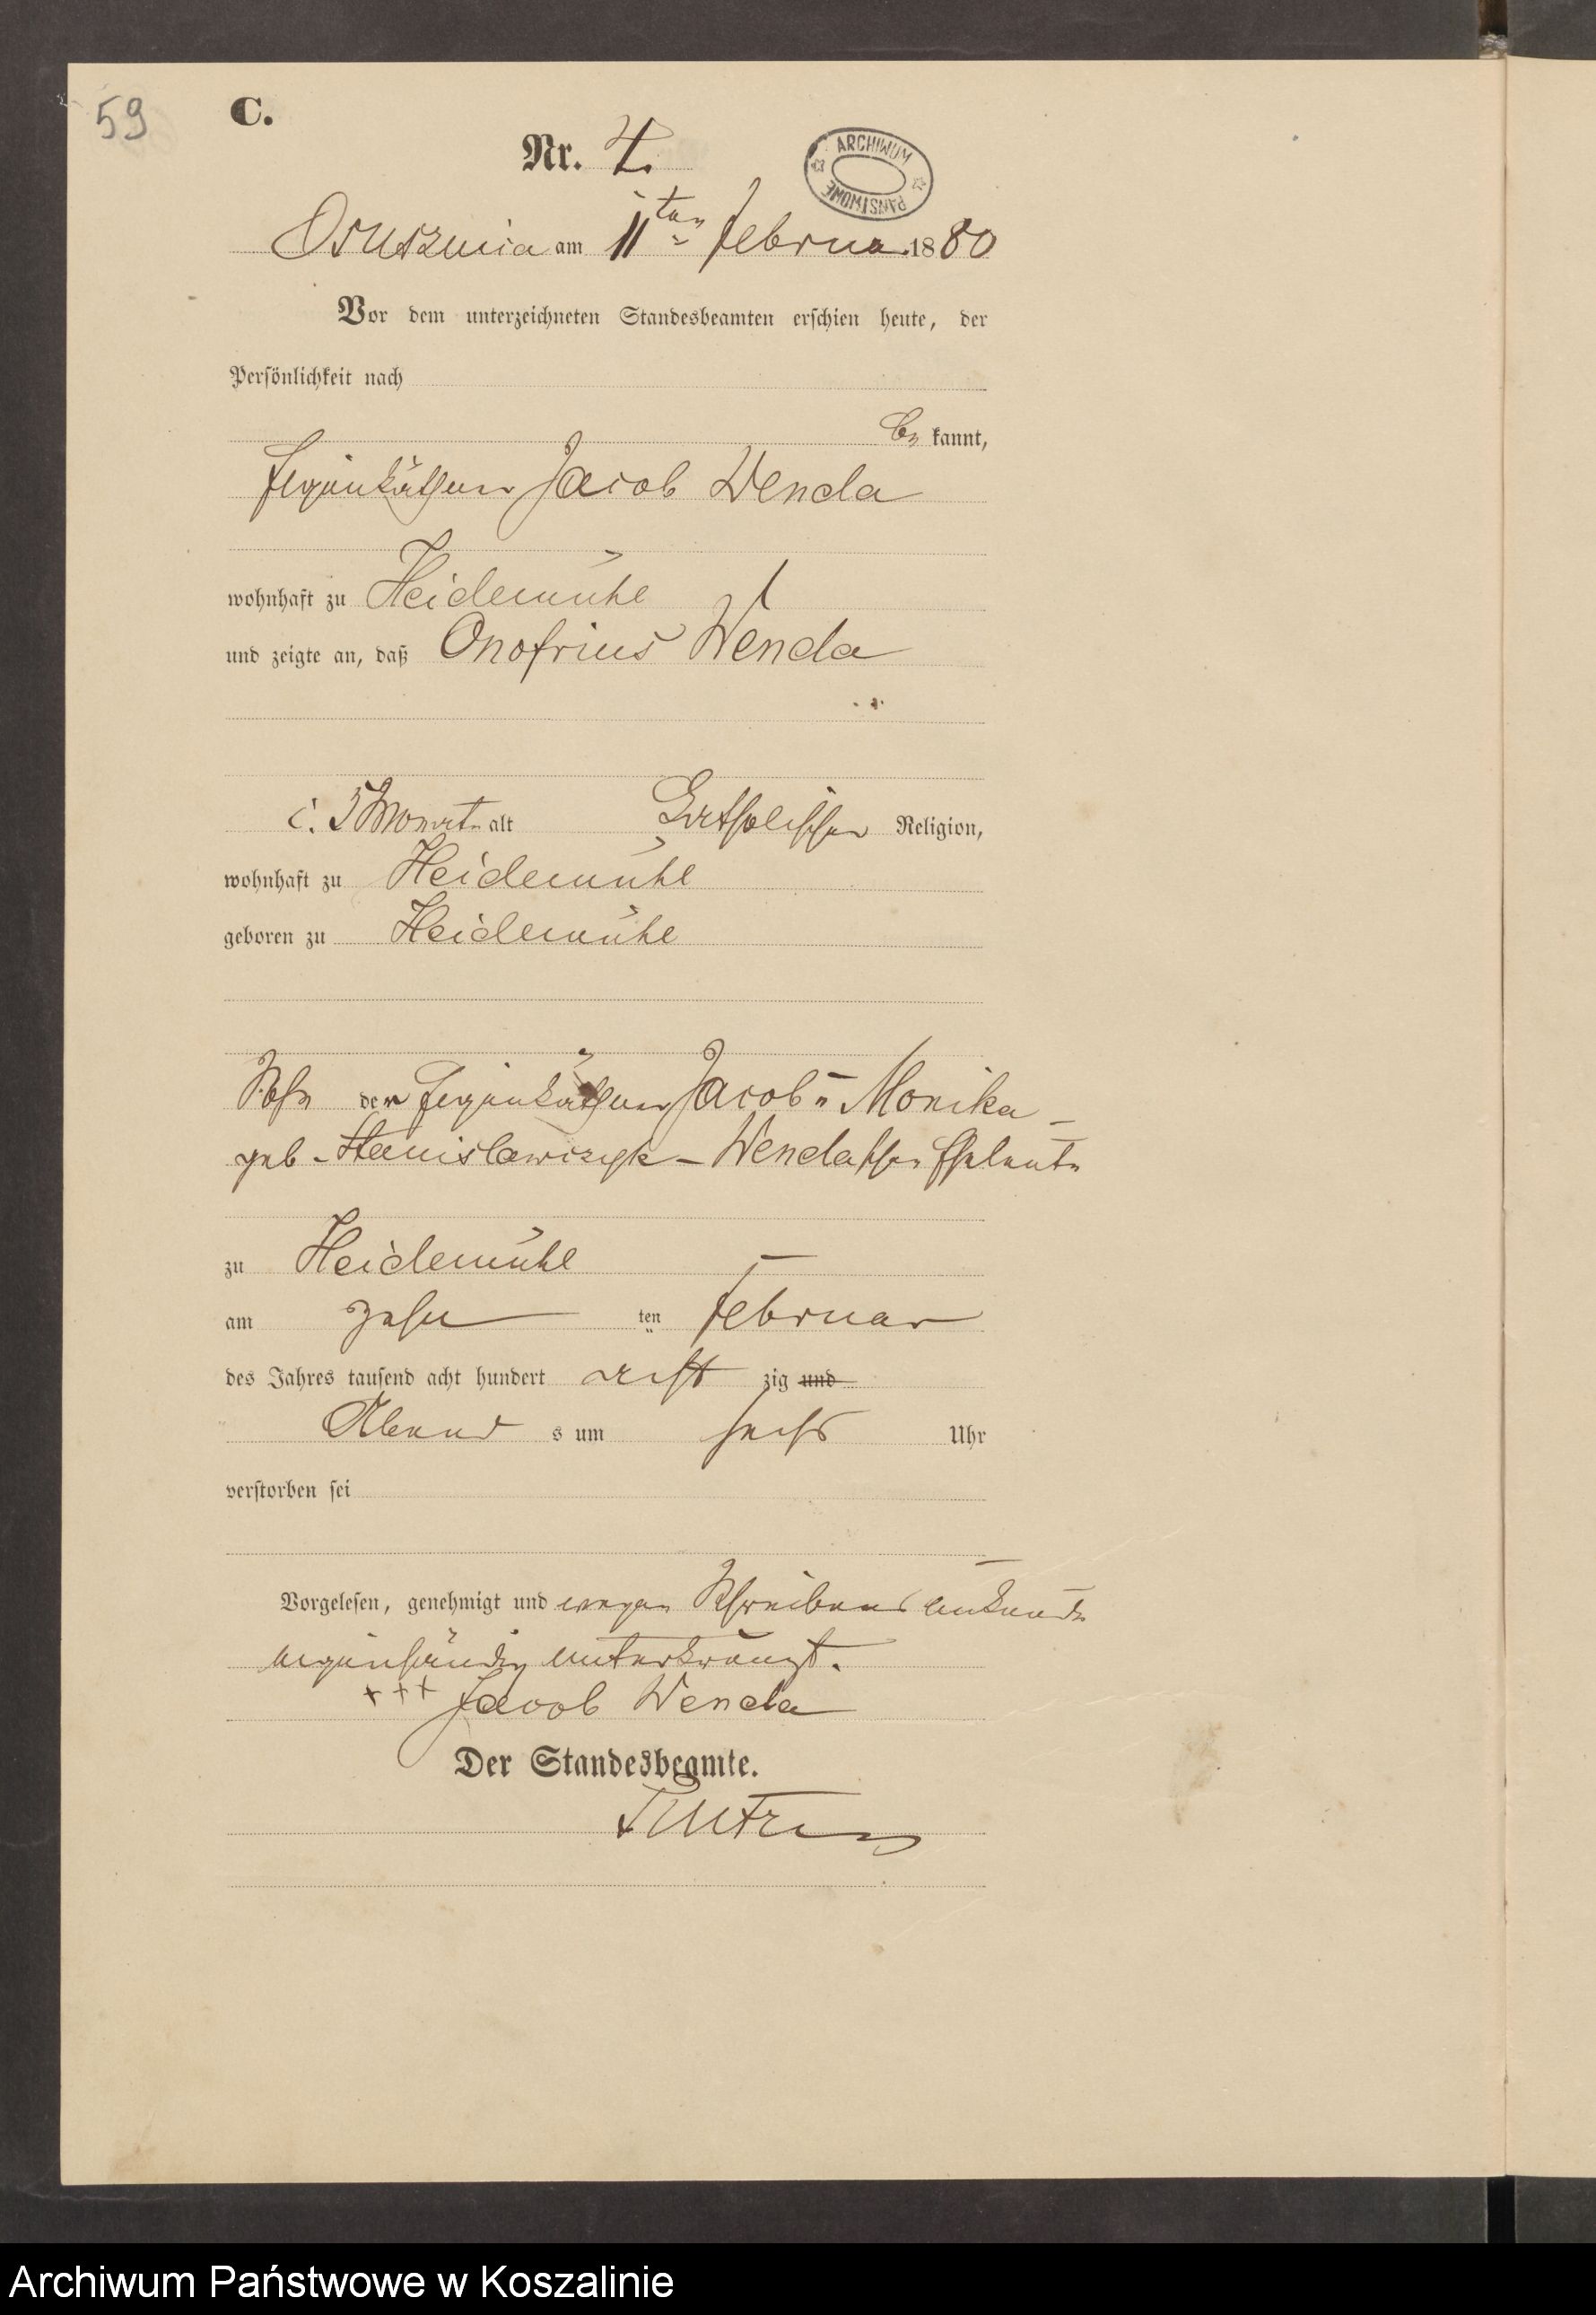 59
C.
Nr. 4.
ARCHIWUM PAŃSTWOWE
Osusznica am 11ten Februar 1880
Vor dem unterzeichneten Standesbeamten erschien heute, der
Persönlichkeit nach
be kannt,
Eigenkäthner Jacob Wenda
wohnhaft zu Heidemühl
und zeigte an, daß Onofrius Wenda
Monate alt katholischer Religion,
wohnhaft zu Heidemühl
geboren zu Heidemühl
Sohn der Eigenkäthner Jacob u Monika
geb. Stanislawczyk - Wendaschen Eheleute
zu Heidemühl
am zehn ten Februar
des Jahres tausend acht hundert acht zig und
Abend s um sechs Uhr
verstorben sei
Vorgelesen, genehmigt und wegen Schreibensunkunde
eigenhändig unterkreuzt.
+++ Jacob Wenda
Der Standesbeamte.
Archiwum Państwowe w Koszalinie